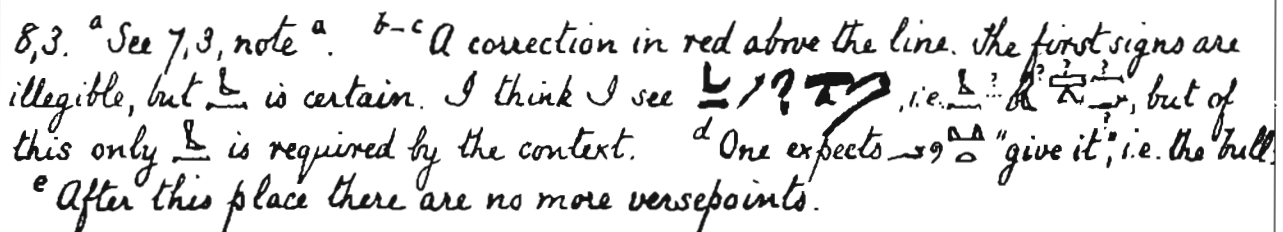 8,3. ᵃ See 7,3, note ᵃ. ᵇ⁻ᶜ A correction in red above the line. The first signs are
illegible, but is certain. I think I see , i.e. , but of
this only is required by the context. ᵈ One expects "give it", i.e. the bull.
ᵉ After this place there are no more versepoints.